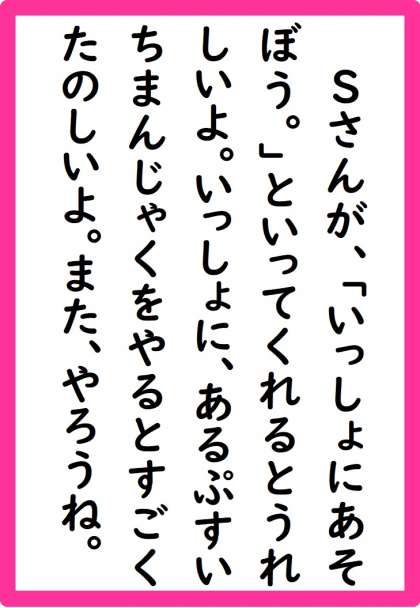 Ｓさんが、「いっしょにあそ
ぼう。」といってくれるとうれ
しいよ。いっしょに、あるぷすい
ちまんじゃくをやるとすごく
たのしいよ。また、やろうね。